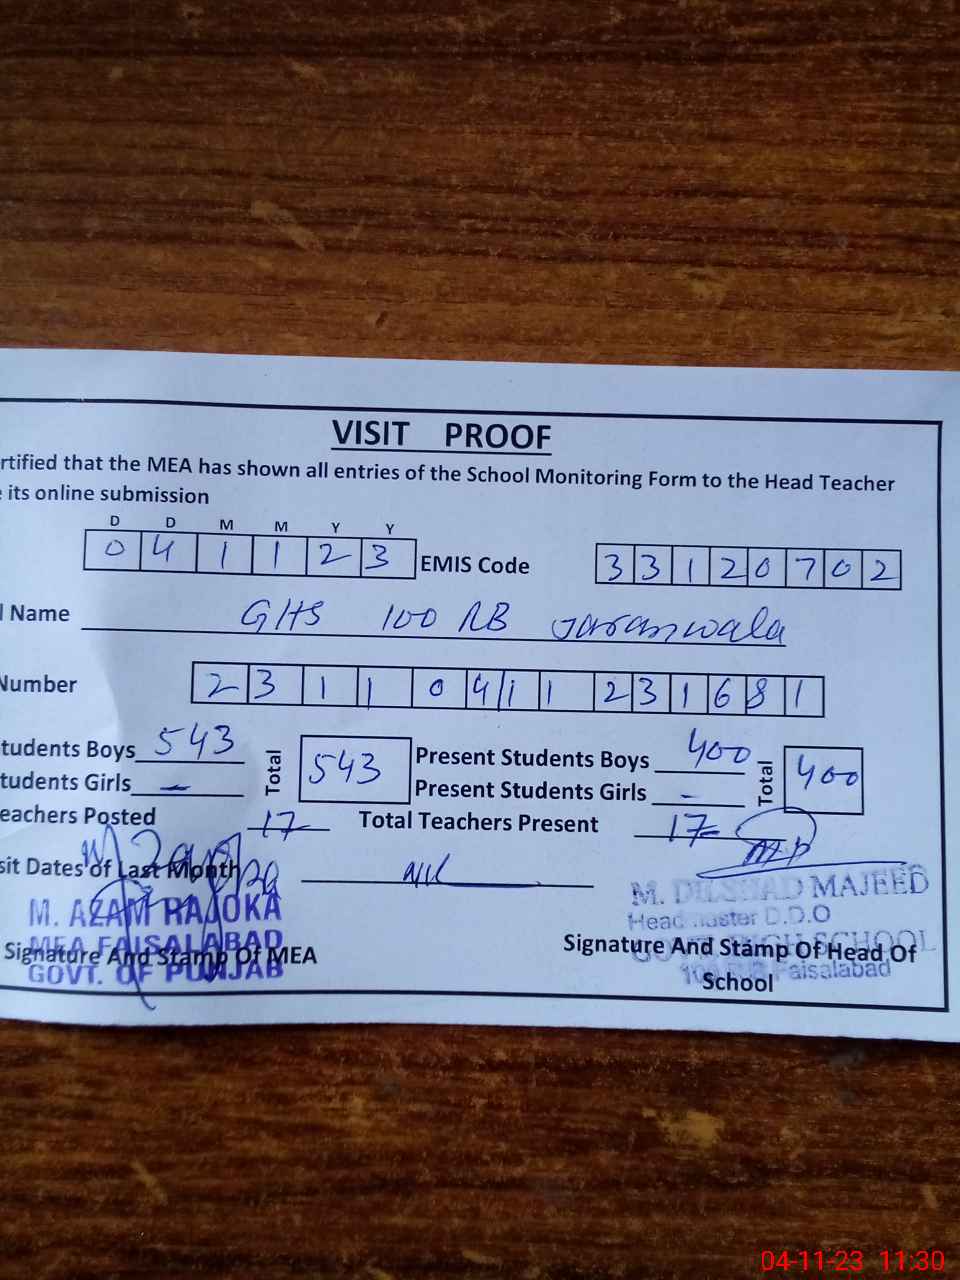 VISIT PROOF
rtified that the MEA has shown all entries of the School Monitoring Form to the Head Teacher
its online submission
D D M M Y Y
0 4 1 1 2 3 EMIS Code 3 3 1 2 0 7 0 2
l Name GHS 100 RB Jaranwala
Number 2 3 1 1 0 4 1 1 2 3 1 6 8 1
tudents Boys 543 Total 543 Present Students Boys 400 Total 400
tudents Girls — Present Students Girls -
eachers Posted 17 Total Teachers Present 17
sit Dates of Last Month Nil
M. AZAM RAJOKA
MEA FAISALABAD
GOVT. OF PUNJAB
Signature And Stamp Of MEA
M. DILSHAD MAJEED
Headmaster D.D.O
GOVT. HIGH SCHOOL
Faisalabad
Signature And Stamp Of Head Of
School
04-11-23 11:30